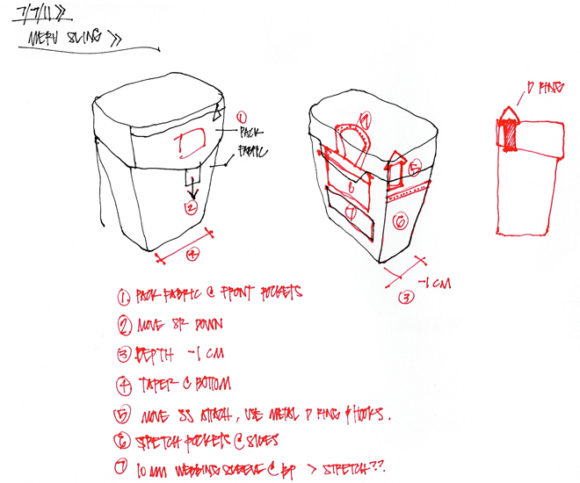 7/7/11 >>
MERU SLING >>
①
PACK
FABRIC
②
④
⑤
6
7
⑥
-1 CM
③
D RING
① PACK FABRIC @ FRONT POCKETS
② MOVE SR DOWN
③ DEPTH -1 CM
④ TAPER @ BOTTOM
⑤ MOVE SS ATTACH, USE METAL D RING & HOOKS.
⑥ STRETCH POCKETS @ SIDES
⑦ 10 MM WEBBING SLEEVE @ BP > STRETCH??